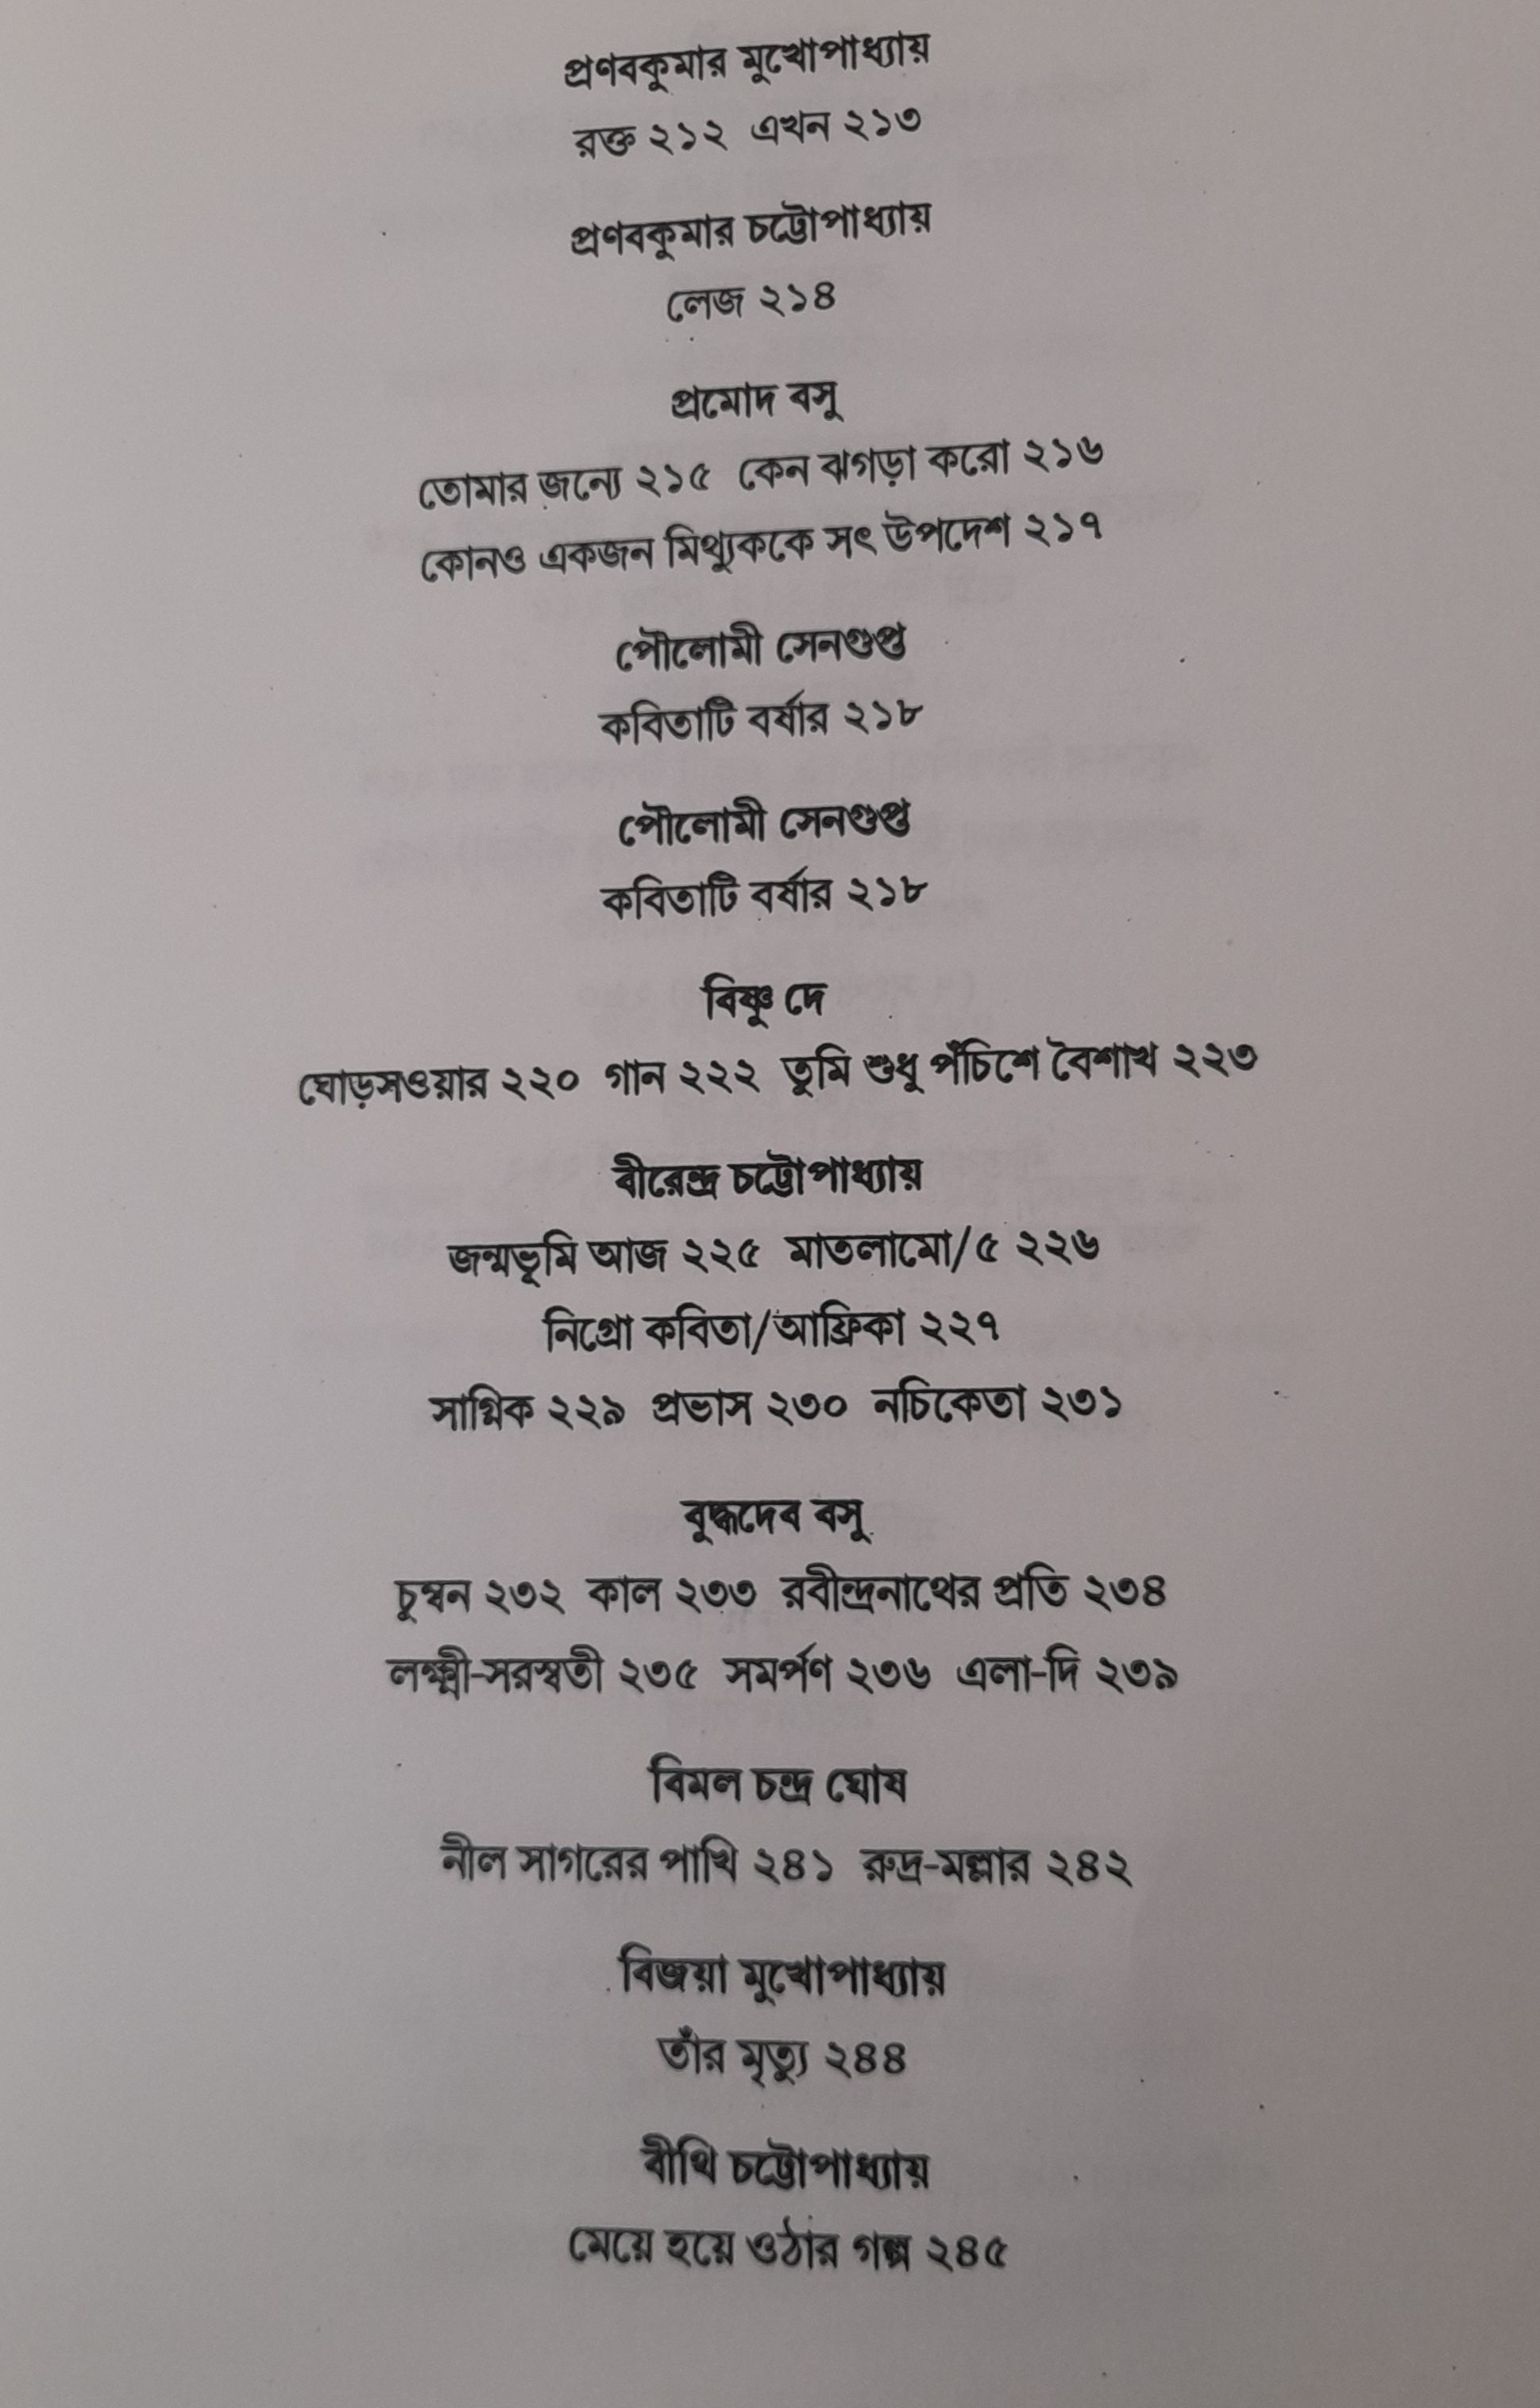 প্রণবকুমার মুখোপাধ্যায়
রক্ত ২১২ এখন ২১৩
প্রণবকুমার চট্টোপাধ্যায়
লেজ ২১৪
প্রমোদ বসু
তোমার জন্যে ২১৫ কেন ঝগড়া করো ২১৬
কোনও একজন মিথ্যুককে সৎ উপদেশ ২১৭
পৌলোমী সেনগুপ্ত
কবিতাটি বর্ষার ২১৮
পৌলোমী সেনগুপ্ত
কবিতাটি বর্ষার ২১৮
বিষ্ণু দে
ঘোড়সওয়ার ২২০ গান ২২২ তুমি শুধু পঁচিশে বৈশাখ ২২৩
বীরেন্দ্র চট্টোপাধ্যায়
জন্মভূমি আজ ২২৫ মাতলামো/৫ ২২৬
নিগ্রো কবিতা/আফ্রিকা ২২৭
সাগ্নিক ২২৯ প্রভাস ২৩০ নচিকেতা ২৩১
বুদ্ধদেব বসু
চুম্বন ২৩২ কাল ২৩৩ রবীন্দ্রনাথের প্রতি ২৩৪
লক্ষ্মী-সরস্বতী ২৩৫ সমর্পণ ২৩৬ এলা-দি ২৩৯
বিমল চন্দ্র ঘোষ
নীল সাগরের পাখি ২৪১ রুদ্র-মল্লার ২৪২
বিজয়া মুখোপাধ্যায়
তাঁর মৃত্যু ২৪৪
বীথি চট্টোপাধ্যায়
মেয়ে হয়ে ওঠার গল্প ২৪৫